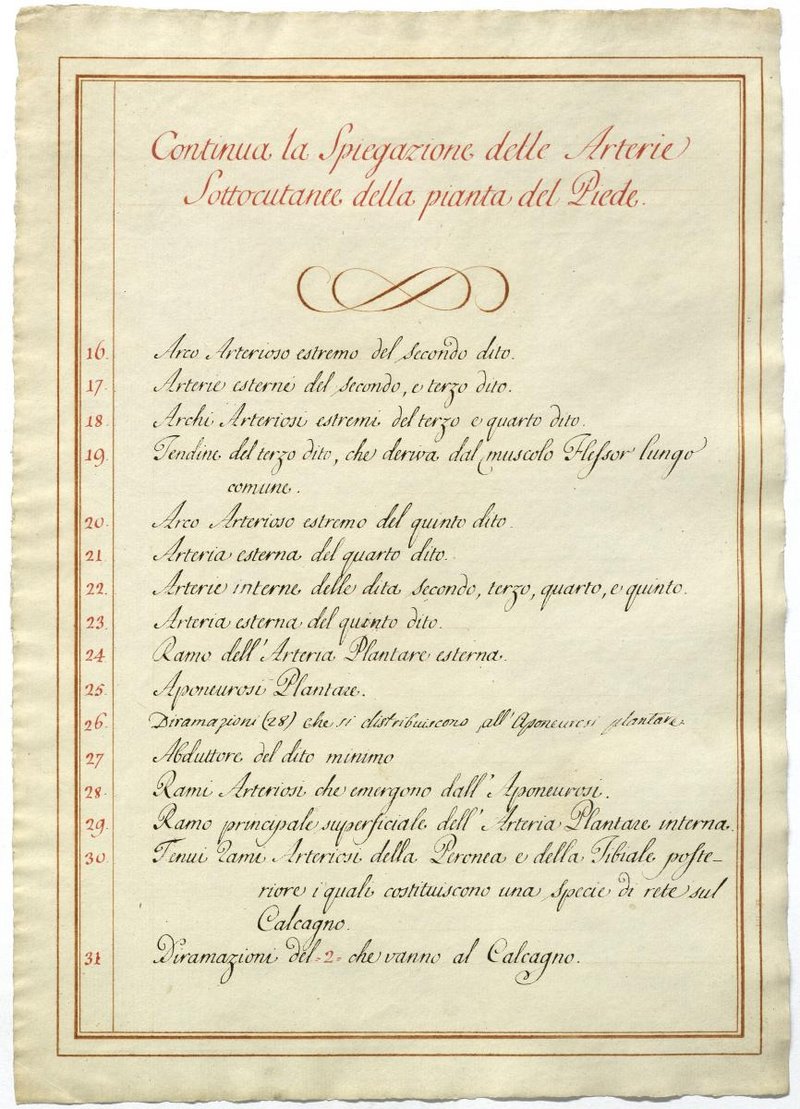 Continua la Spiegazione delle Arterie
Sottocutanee della pianta del Piede.
16. Arco Arterioso estremo del secondo dito.
17. Arterie esterne del secondo, e terzo dito.
18. Archi Arteriosi estremi del terzo e quarto dito.
19. Tendine del terzo dito, che deriva dal muscolo Flessor lungo
comune.
20. Arco Arterioso estremo del quinto dito.
21. Arteria esterna del quarto dito.
22. Arterie interne delle dita secondo, terzo, quarto, e quinto.
23. Arteria esterna del quinto dito.
24 Ramo dell'Arteria Plantare esterna.
25. Aponeurosi Plantare.
26. Diramazioni (28) che si distribuiscono all'Aponeurosi plantare
27 Abduttore del dito minimo
28. Rami Arteriosi che emergono dall'Aponeurosi.
29. Ramo principale superficiale dell'Arteria Plantare interna.
30. Tenui rami Arteriosi della Peronea e della Tibiale poste-
riore i quali costituiscono una specie di rete sul
Calcagno.
31 Diramazioni del =2= che vanno al Calcagno.